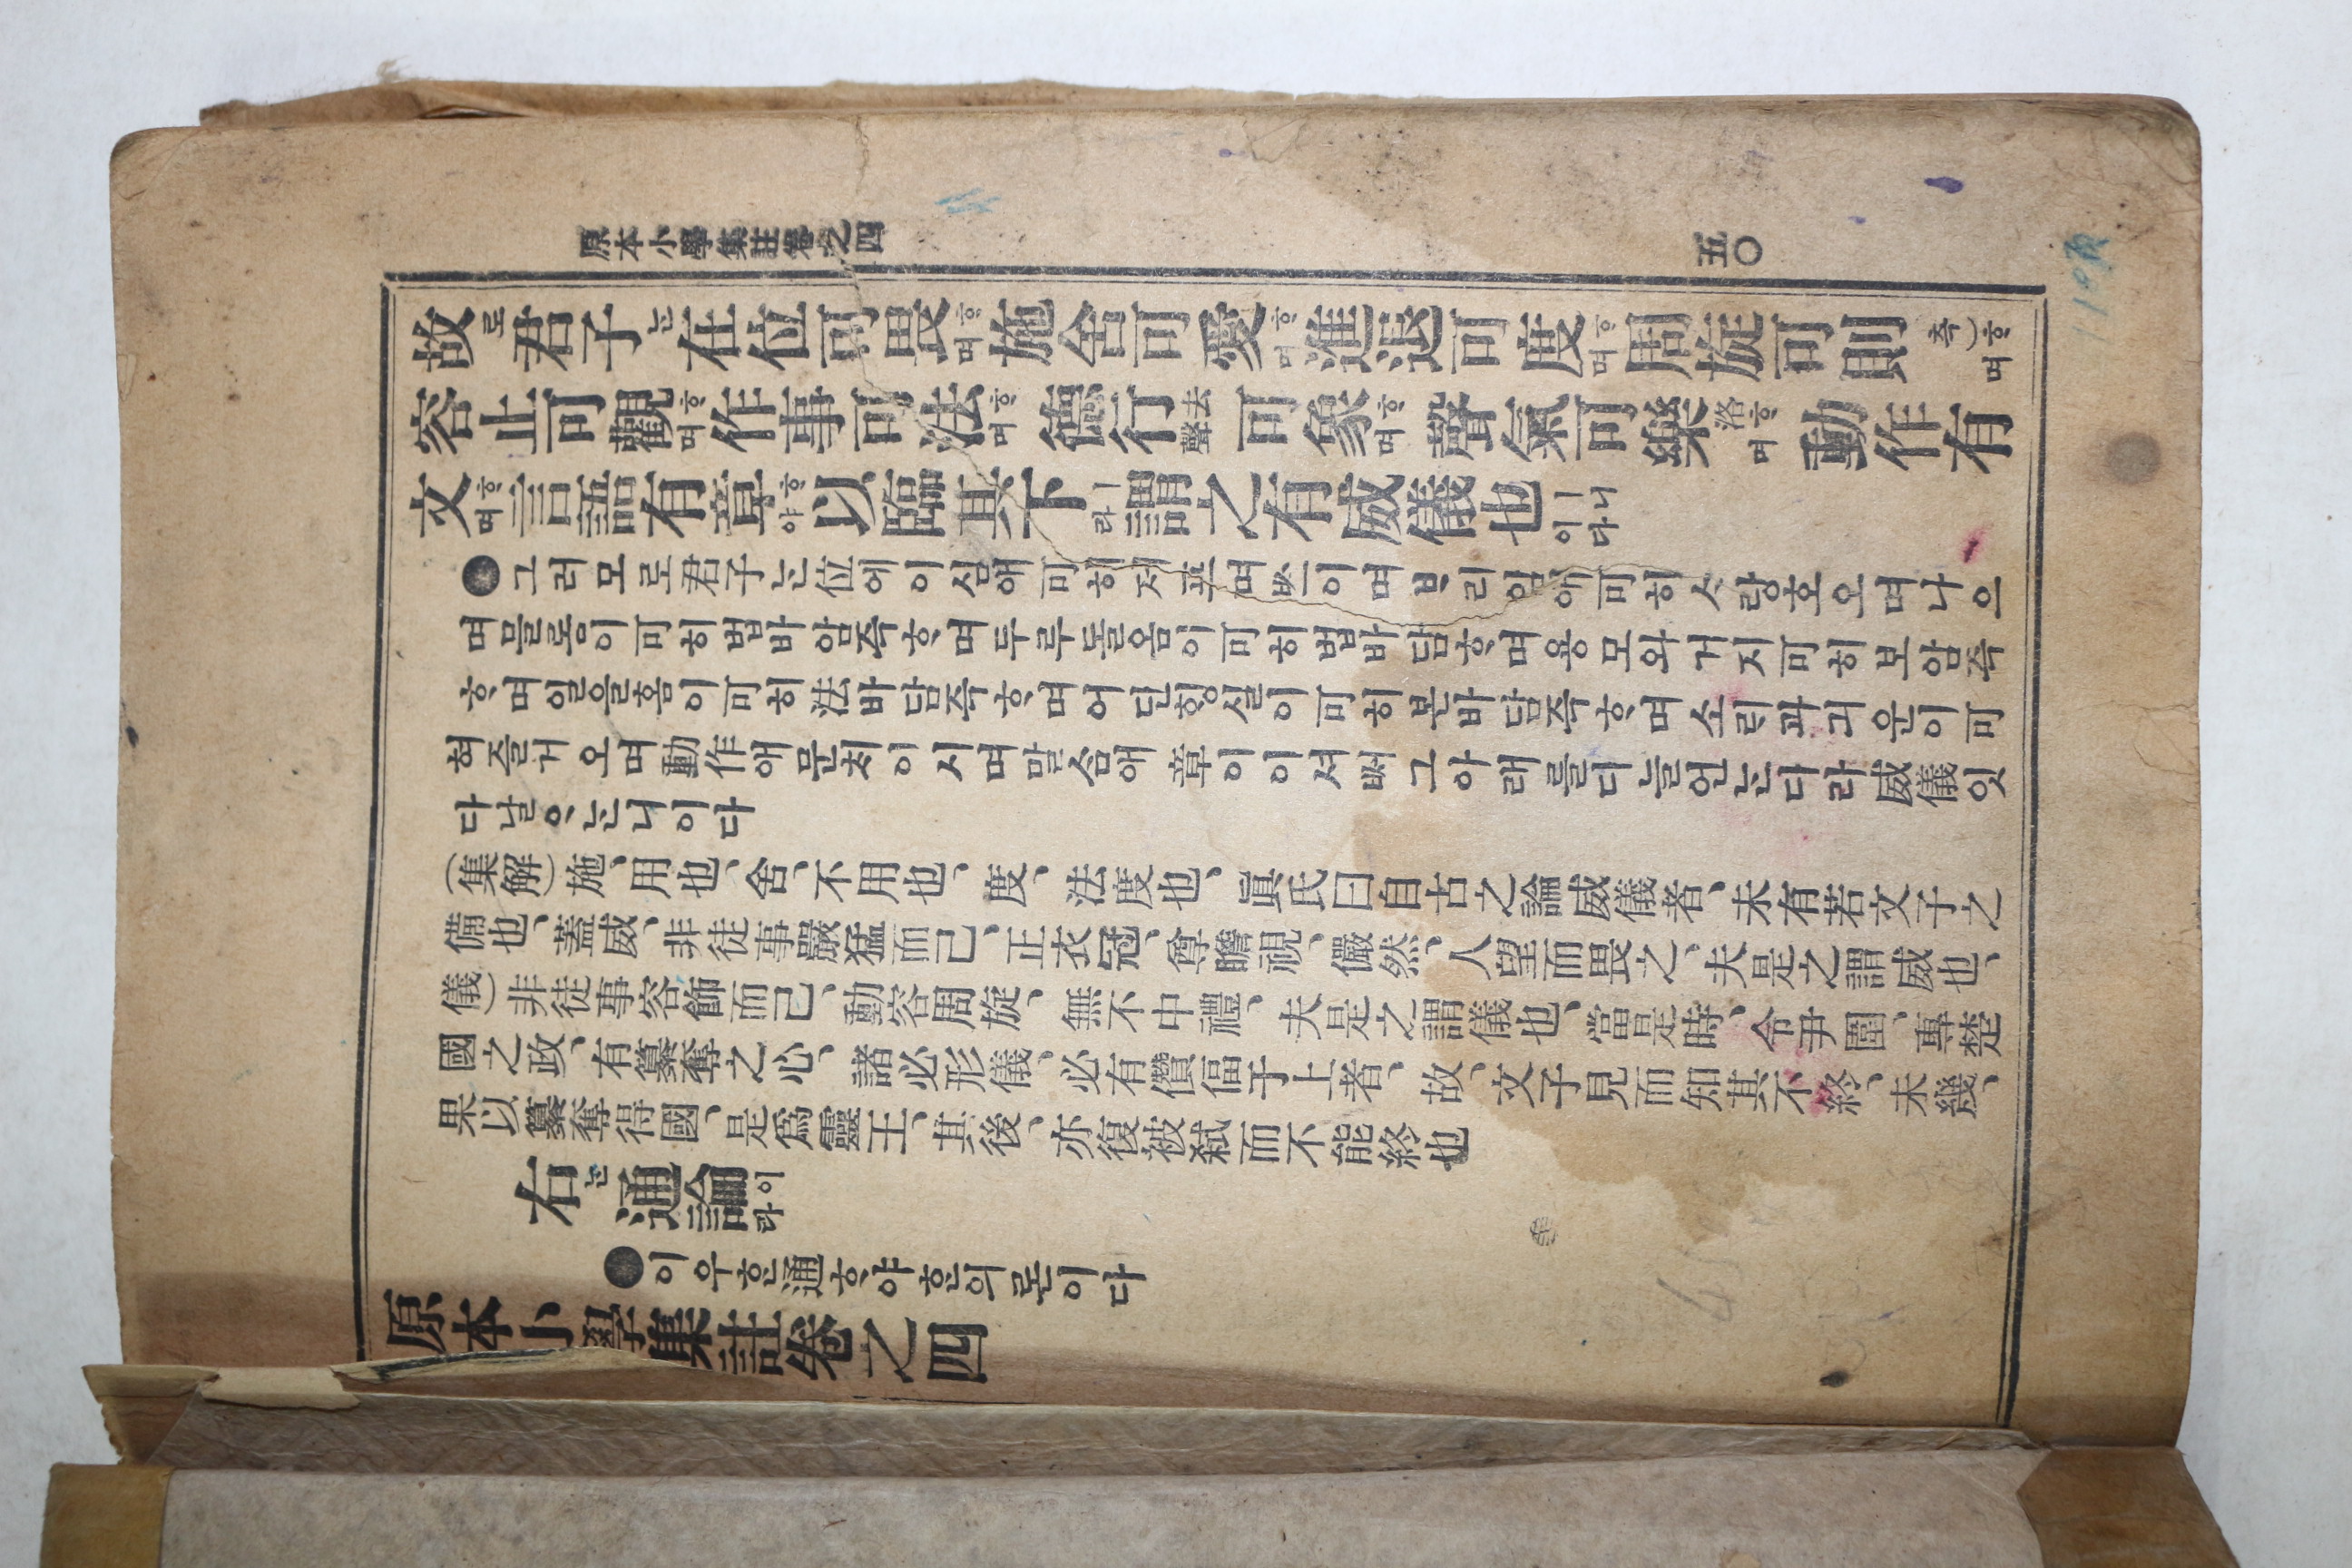 原本小學集註卷之四
五〇
故로君子ᄂᆞᆫ在位可畏ᄒᆞ며施舍可愛ᄒᆞ며進退可度ᄒᆞ며周旋可則(측)ᄒᆞ며
容止可觀ᄒᆞ며作事可法ᄒᆞ며德行去聲可象ᄒᆞ며聲氣可樂洛ᄒᆞ며動作有
文ᄒᆞ며言語有章ᄒᆞ야以臨其下ㅣ라謂之有威儀也ㅣ니이다
●그러모로君子ᄂᆞᆫ位에이심애可히저프며ᄡᅳ이며ᄇᆞ리임애可히ᄉᆞ랑ᄒᆞ오며나으
며믈롬이可히법바암즉ᄒᆞ며두루돌옴이可히법바담ᄒᆞ며용모와거지可히보암즉
ᄒᆞ며일을홈이可히法바담즉ᄒᆞ며어딘ᄒᆡᆼ실이可히본바담즉ᄒᆞ며소ᄅᆡ과긔운이可
혀즐거오며動作애문ᄎᆡ이시며말ᄉᆞᆷ애章이이셔ᄡᅥ그아래를디늘언ᄂᆞᆫ디라威儀잇
다닐ᄋᆞᄂᆞ니이다
(集解)施、用也、舍、不用也、度、法度也、眞氏曰自古之論威儀者、未有若文子之
備也、蓋威、非徒事嚴猛而已、正衣冠、尊瞻視、儼然、人望而畏之、夫是之謂威也、
儀)非徒事容飾而已、動容周旋、無不中禮、夫是之謂儀也、當是時、令尹圍、專楚
國之政、有簒奪之心、諸必形儀、必有僭偪于上者、故、文子見而知其不終、未幾、
果以簒奪得國、是爲靈王、其後、亦復被弑而不能終也
右ᄂᆞᆫ通論이라
●이우흔通ᄒᆞ야ᄒᆞᆫ의론이다
原本小學集註卷之四